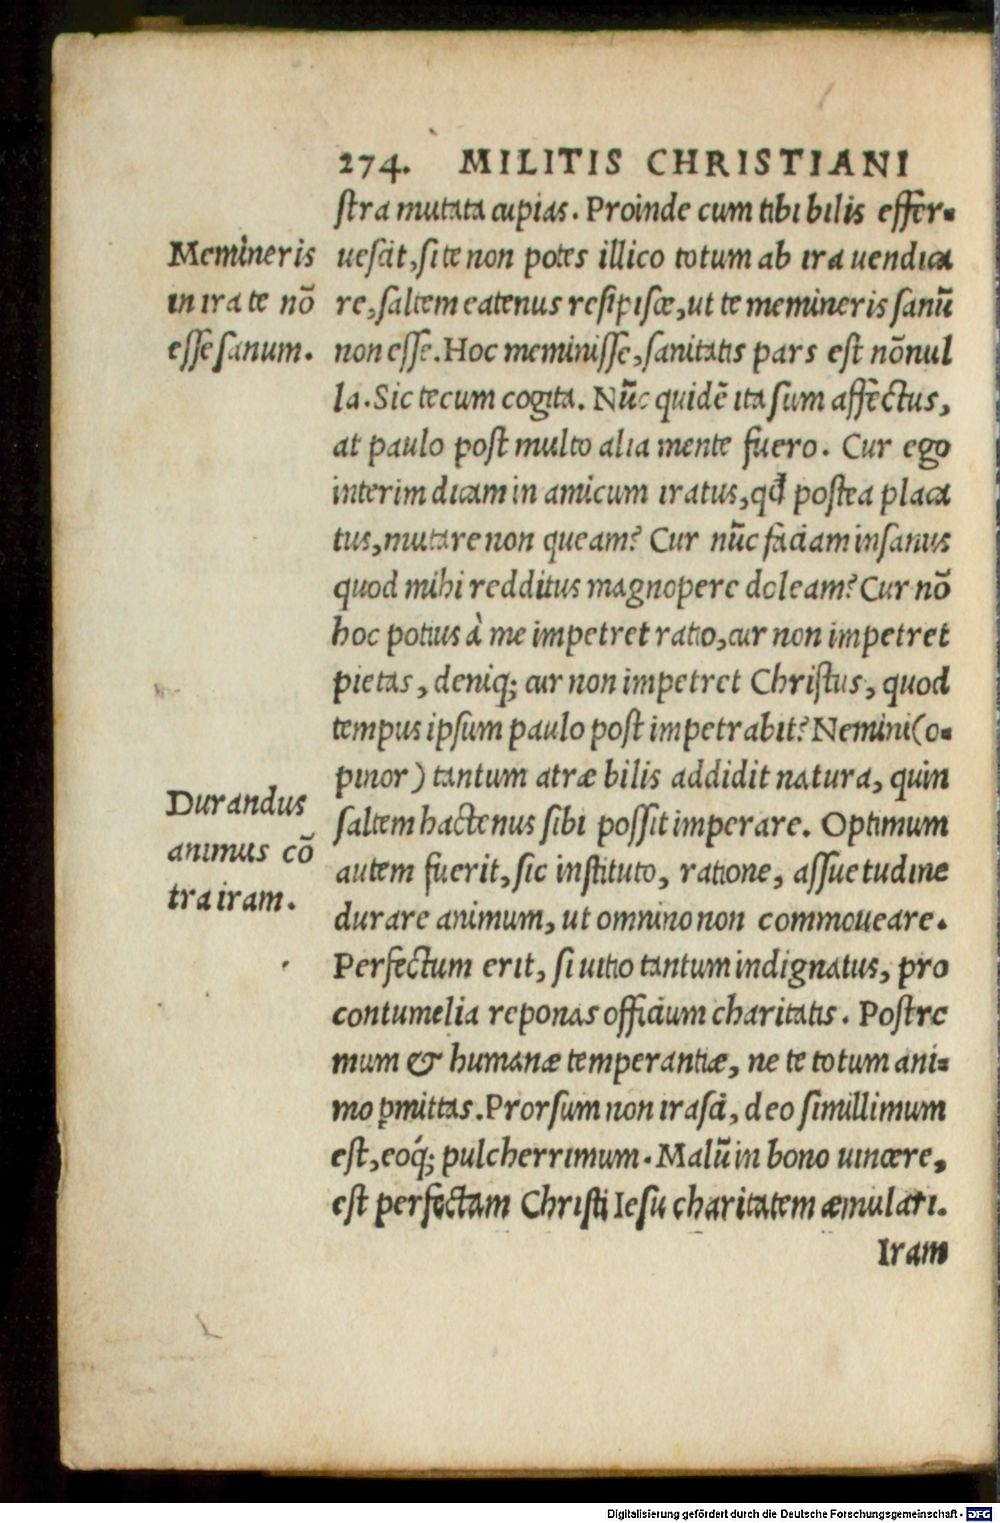 274. MILITIS CHRISTIANI
ſtra mutata cupias. Proinde cum tibi bilis effer-
ueſcit, ſi te non potes illico totum ab ira uendica
re, ſaltem eatenus reſipiſce, ut te memineris ſanũ
non eſſe. Hoc meminiſſe, ſanitatis pars eſt nõnul
la. Sic tecum cogita. Nũc quidẽ ita ſum affectus,
at paulo poſt multo alia mente fuero. Cur ego
interim dicam in amicum iratus, qđ poſtea placa
tus, mutare non queam? Cur nũc faciam inſanus
quod mihi redditus magnopere doleam? Cur nõ
hoc potius à me impetret ratio, cur non impetret
pietas, deniq; cur non impetret Chriſtus, quod
tempus ipſum paulo poſt impetrabit? Nemini (o-
pinor) tantum atræ bilis addidit natura, quin
ſaltem hactenus ſibi poſſit imperare. Optimum
autem fuerit, ſic inſtituto, ratione, aſſuetudine
durare animum, ut omnino non commoueare.
Perfectum erit, ſi uitio tantum indignatus, pro
contumelia reponas officium charitatis. Poſtre
mum & humanæ temperantiæ, ne te totum ani-
mo ꝑmittas. Prorſum non iraſci, deo ſimillimum
eſt, eoq́; pulcherrimum. Malũ in bono uincere,
eſt perfectam Chriſti Ieſu charitatem æmulari.
Iram
Memineris
in ira te nõ
eſſe ſanum.
Durandus
animus cõ
tra iram.
Digitalisierung gefördert durch die Deutsche Forschungsgemeinschaft - DFG